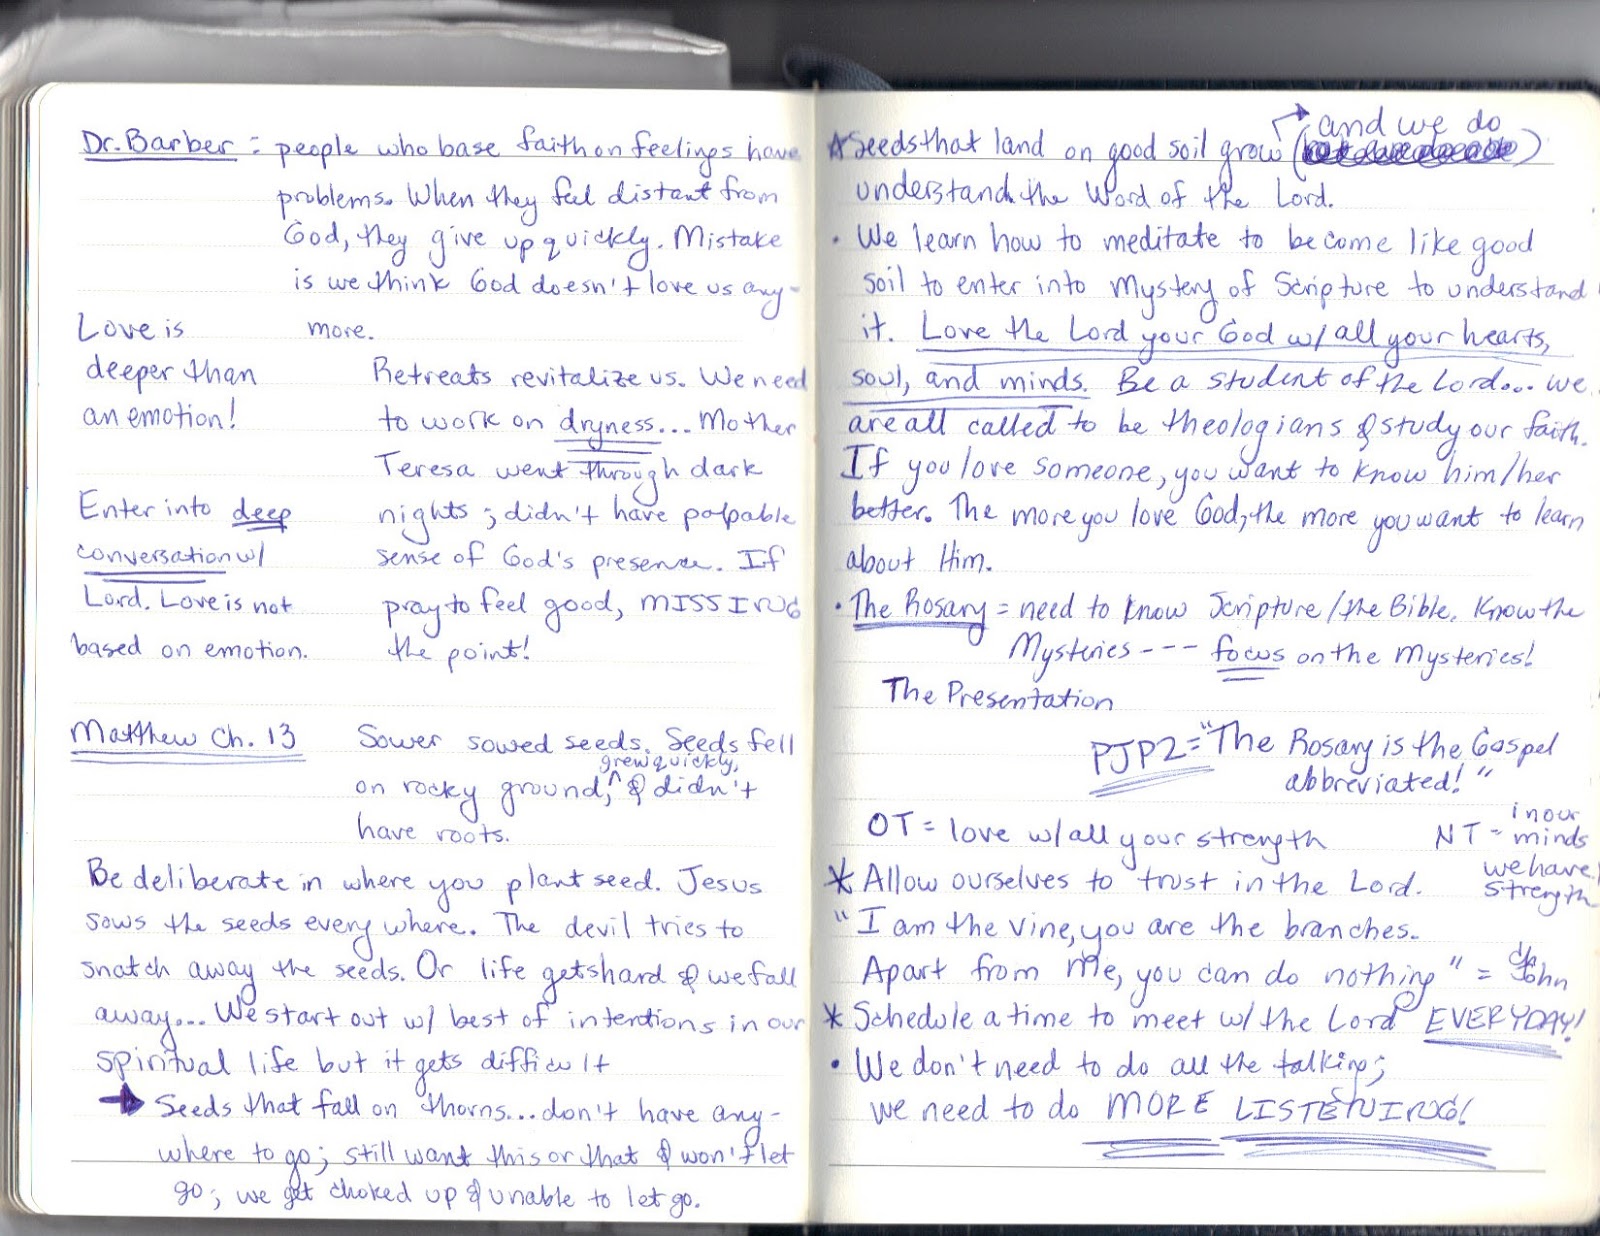 Dr. Barber : people who base faith on feelings have
problems. When they feel distant from
God, they give up quickly. Mistake
is we think God doesn't love us any-
more.
Love is
deeper than
an emotion!
Retreats revitalize us. We need
to work on dryness... Mother
Teresa went through dark
nights ; didn't have palpable
sense of God's presence. If
pray to feel good, MISSING
the point!
Enter into deep
conversation w/
Lord. Love is not
based on emotion.
Matthew Ch. 13
Sower sowed seeds. Seeds fell
on rocky ground, ^ grew quickly, & didn't
have roots.
Be deliberate in where you plant seed. Jesus
sows the seeds everywhere. The devil tries to
snatch away the seeds. Or life gets hard & we fall
away... We start out w/ best of intentions in our
spiritual life but it gets difficult
→ Seeds that fall on thorns... don't have any-
where to go; still want this or that & won't let
go; we get choked up & unable to let go.
☆ Seeds that land on good soil grow ( and we do )
understand the Word of the Lord.
• We learn how to meditate to become like good
soil to enter into Mystery of Scripture to understand
it. Love the Lord your God w/ all your hearts,
soul, and minds. Be a student of the Lord... we
are all called to be theologians & study our faith.
If you love someone, you want to know him/her
better. The more you love God, the more you want to learn
about Him.
• The Rosary = need to know Scripture/the Bible. Know the
Mysteries - - - focus on the Mysteries!
The Presentation
PJP2 = "The Rosary is the Gospel
abbreviated!"
OT = love w/ all your strength
NT = in our
minds
we have
strength
* Allow ourselves to trust in the Lord.
"I am the vine, you are the branches.
Apart from Me, you can do nothing" = John
* Schedule a time to meet w/ the Lord EVERYDAY!
• We don't need to do all the talking;
we need to do MORE LISTENING!